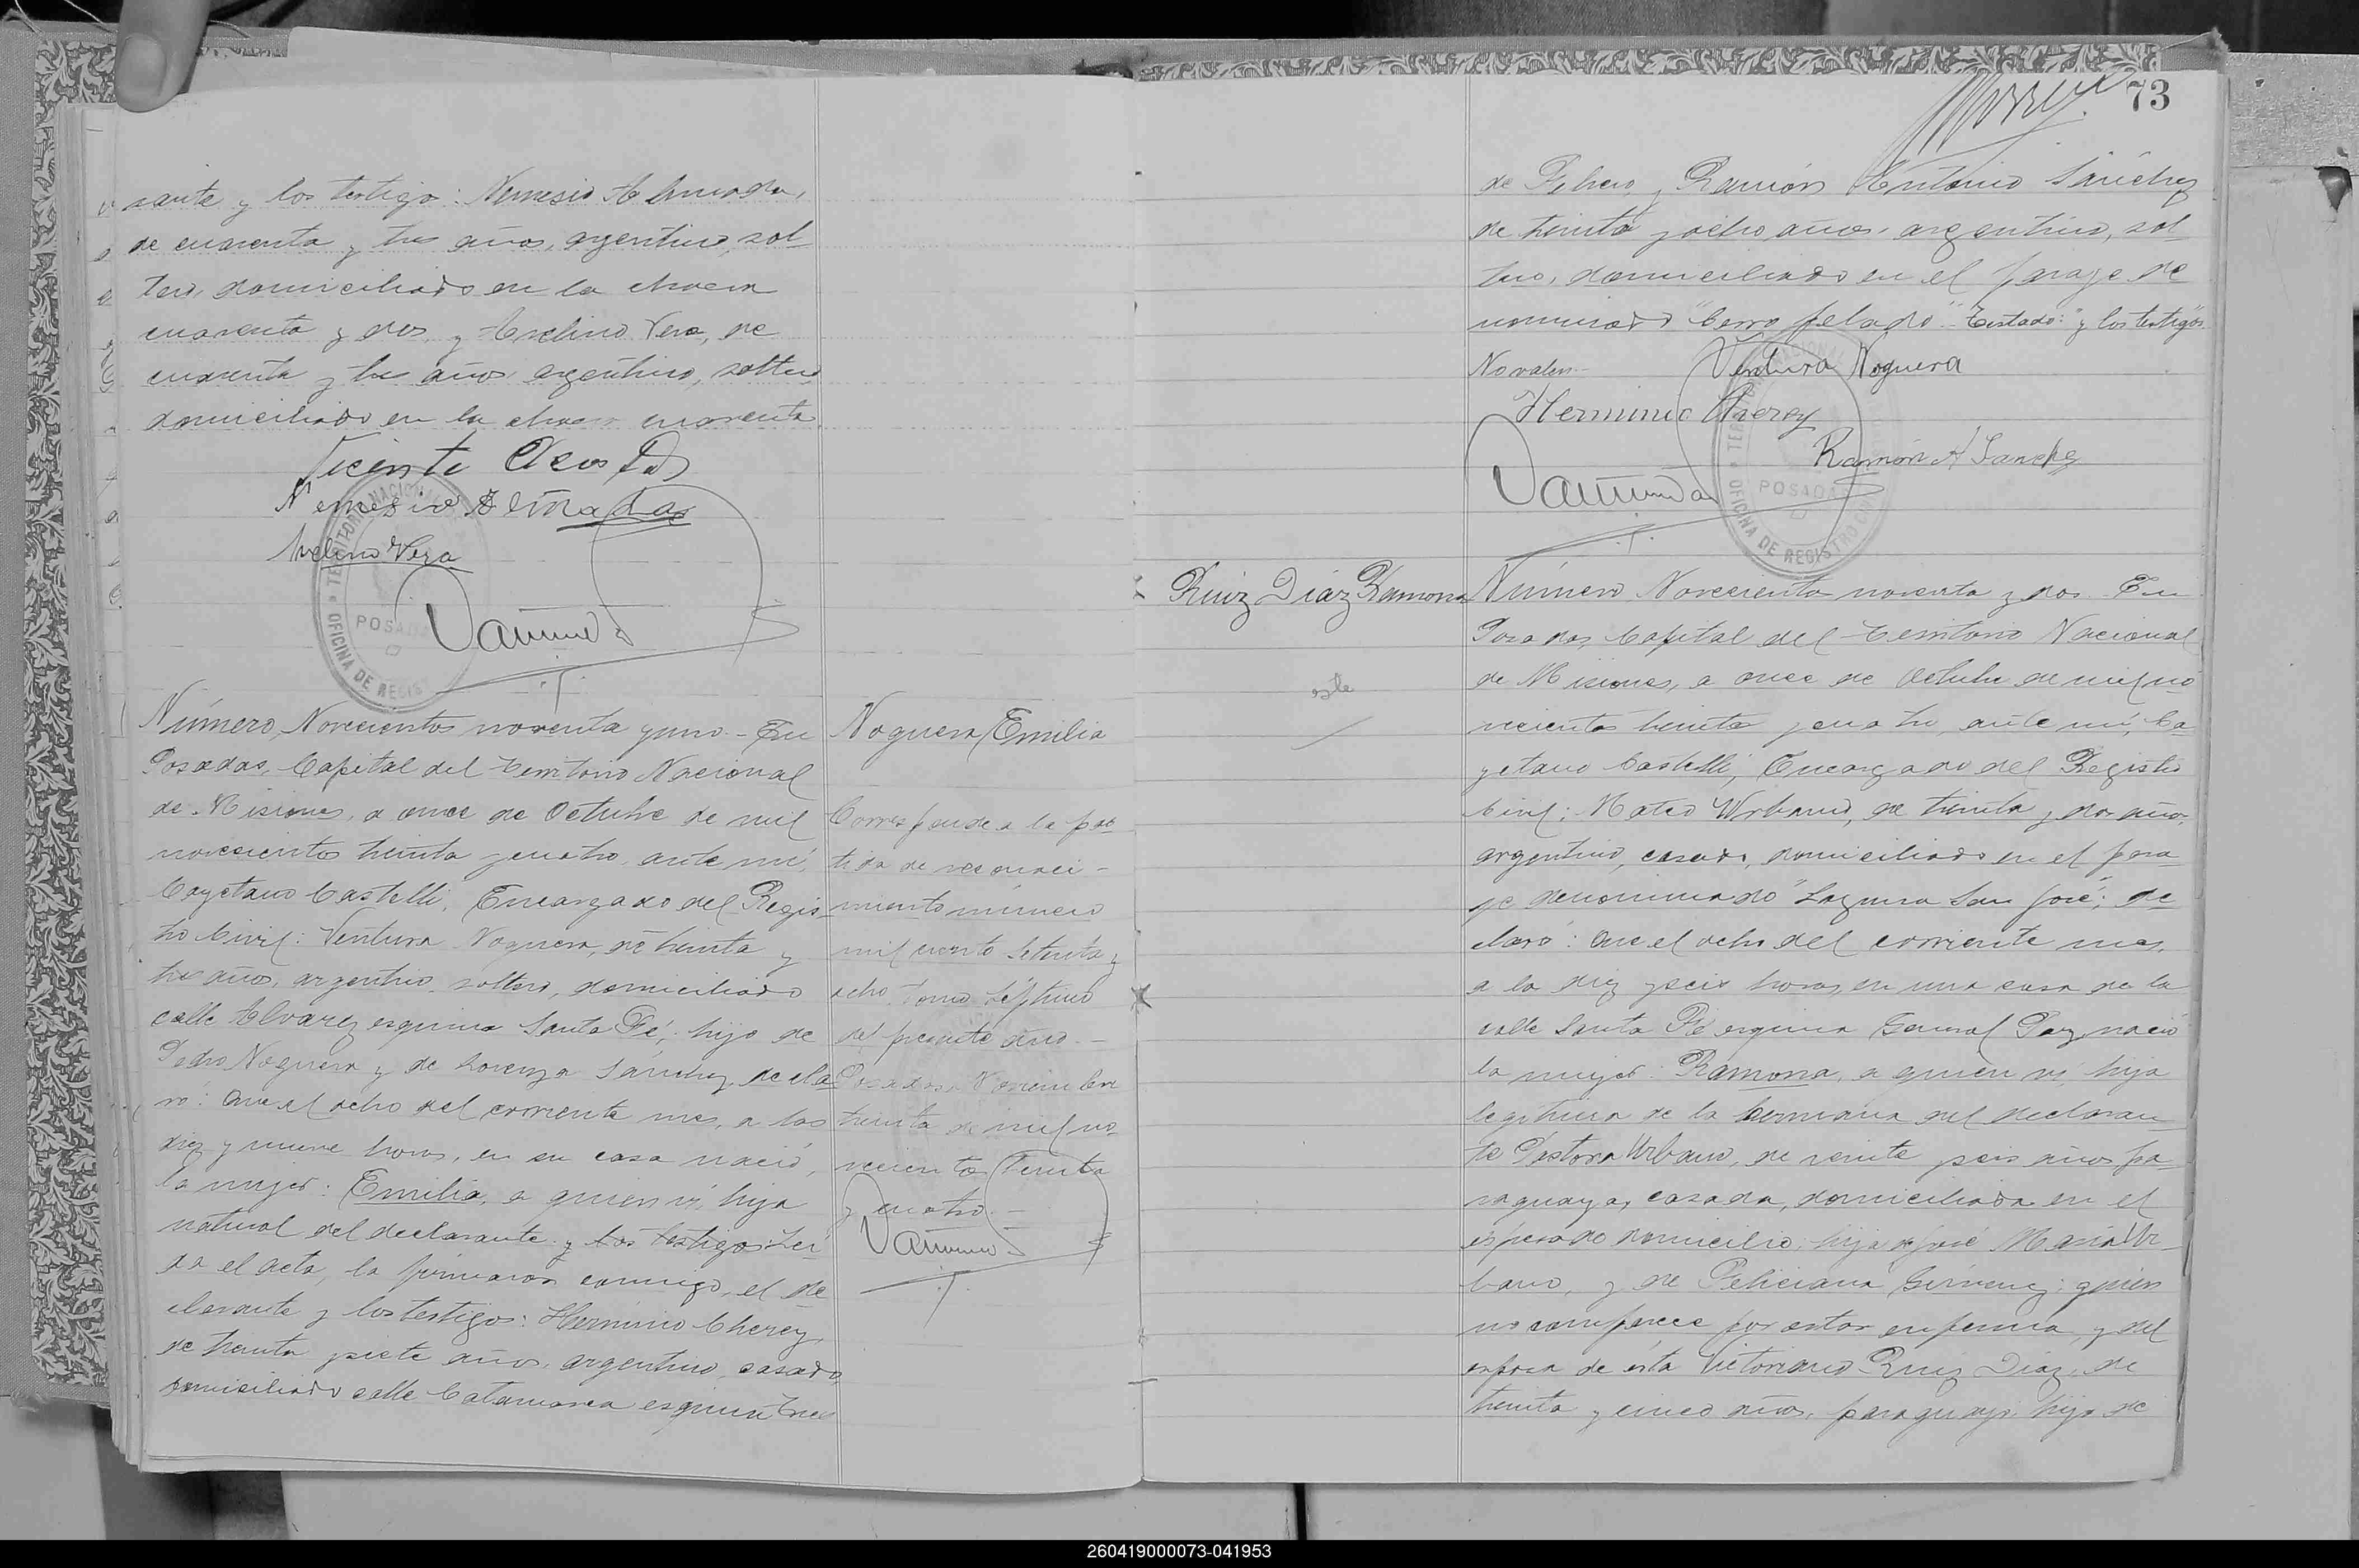 rante y los testigos: Nemesio Almada,
de cuarenta y tres años, argentino, sol
tero, domiciliado en la chacra
cuarenta y dos y Avelino Vera, de
cuarenta y tres años, argentino, soltero
domiciliado en la chacra cuarenta.
Vicente Acosta
Nemesio Almada
Avelino Vera
TERRITORIO NACIONAL
POSADAS
OFICINA DE REGIS
Número Novecientos noventa y uno - En
Posadas, Capital del Territorio Nacional
de Misiones, a once de Octubre de mil
novecientos treinta y cuatro, ante mí,
Cayetano Castelli, Encargado del Regis
tro Civil: Ventura Noguera, de treinta y
tres años, argentino, soltero, domiciliado
calle Alvarez esquina Santa Fé; hijo de
Pedro Noguera y de Lorenza Sánchez, decla
ró: Que el ocho del corriente mes, a las
diez y nueve horas, en su casa nació,
la mujer: Emilia, a quien ví, hija
natural del declarante y los testigos. Leí
da el acta, la firmaron conmigo, el de
clarante y los testigos: Herminio Cherey,
de treinta y siete años, argentino, casado,
domiciliado calle Catamarca esquina Tres
Noguera Emilia
Corresponde a la par
tida de reconoci-
miento número
mil ciento setenta y
ocho Tomo Séptimo
del presente año.-
Posadas, Noviembre
treinta de mil no
vecientos treinta
y cuatro.-
73
de Febrero y Ramón Antonio Sánchez
de treinta y ocho años, argentino, sol
tero, domiciliado en el paraje de
nominado "Cerro pelado". Testado: "y los testigos"
No valen.-
Ventura Noguera
Herminio Cherey
Ramón A Sanchez
TERRITORIO NACIONAL
POSADAS
OFICINA DE REGISTRO CIVIL
Ruiz Díaz Ramona
este
Número Novecientos noventa y dos. En
Posadas, Capital del Territorio Nacional
de Misiones, a once de Octubre de mil no
vecientos treinta y cuatro, ante mí, Ca
yetano Castelli, Encargado del Registro
Civil: Mateo Urbano, de treinta y dos años,
argentino, casado, domiciliado en el para
je denominado "Laguna San José"; de
claró: Que el ocho del corriente mes,
a la diez y seis horas, en una casa de la
calle Santa Fé esquina General Paz, nació
la mujer: Ramona, a quien ví, hija
legítima de la hermana del declaran
te Pastora Urbano, de veinte y seis años, pa-
raguaya, casada, domiciliada en el
expresado domicilio, hija de José María Ur-
bano, y de Feliciana Gimenez; quien
no comparece por estar enferma, y del
esposo de ésta Victoriano Ruiz Díaz, de
treinta y cinco años, paraguayo, hijo de
260419000073-041953